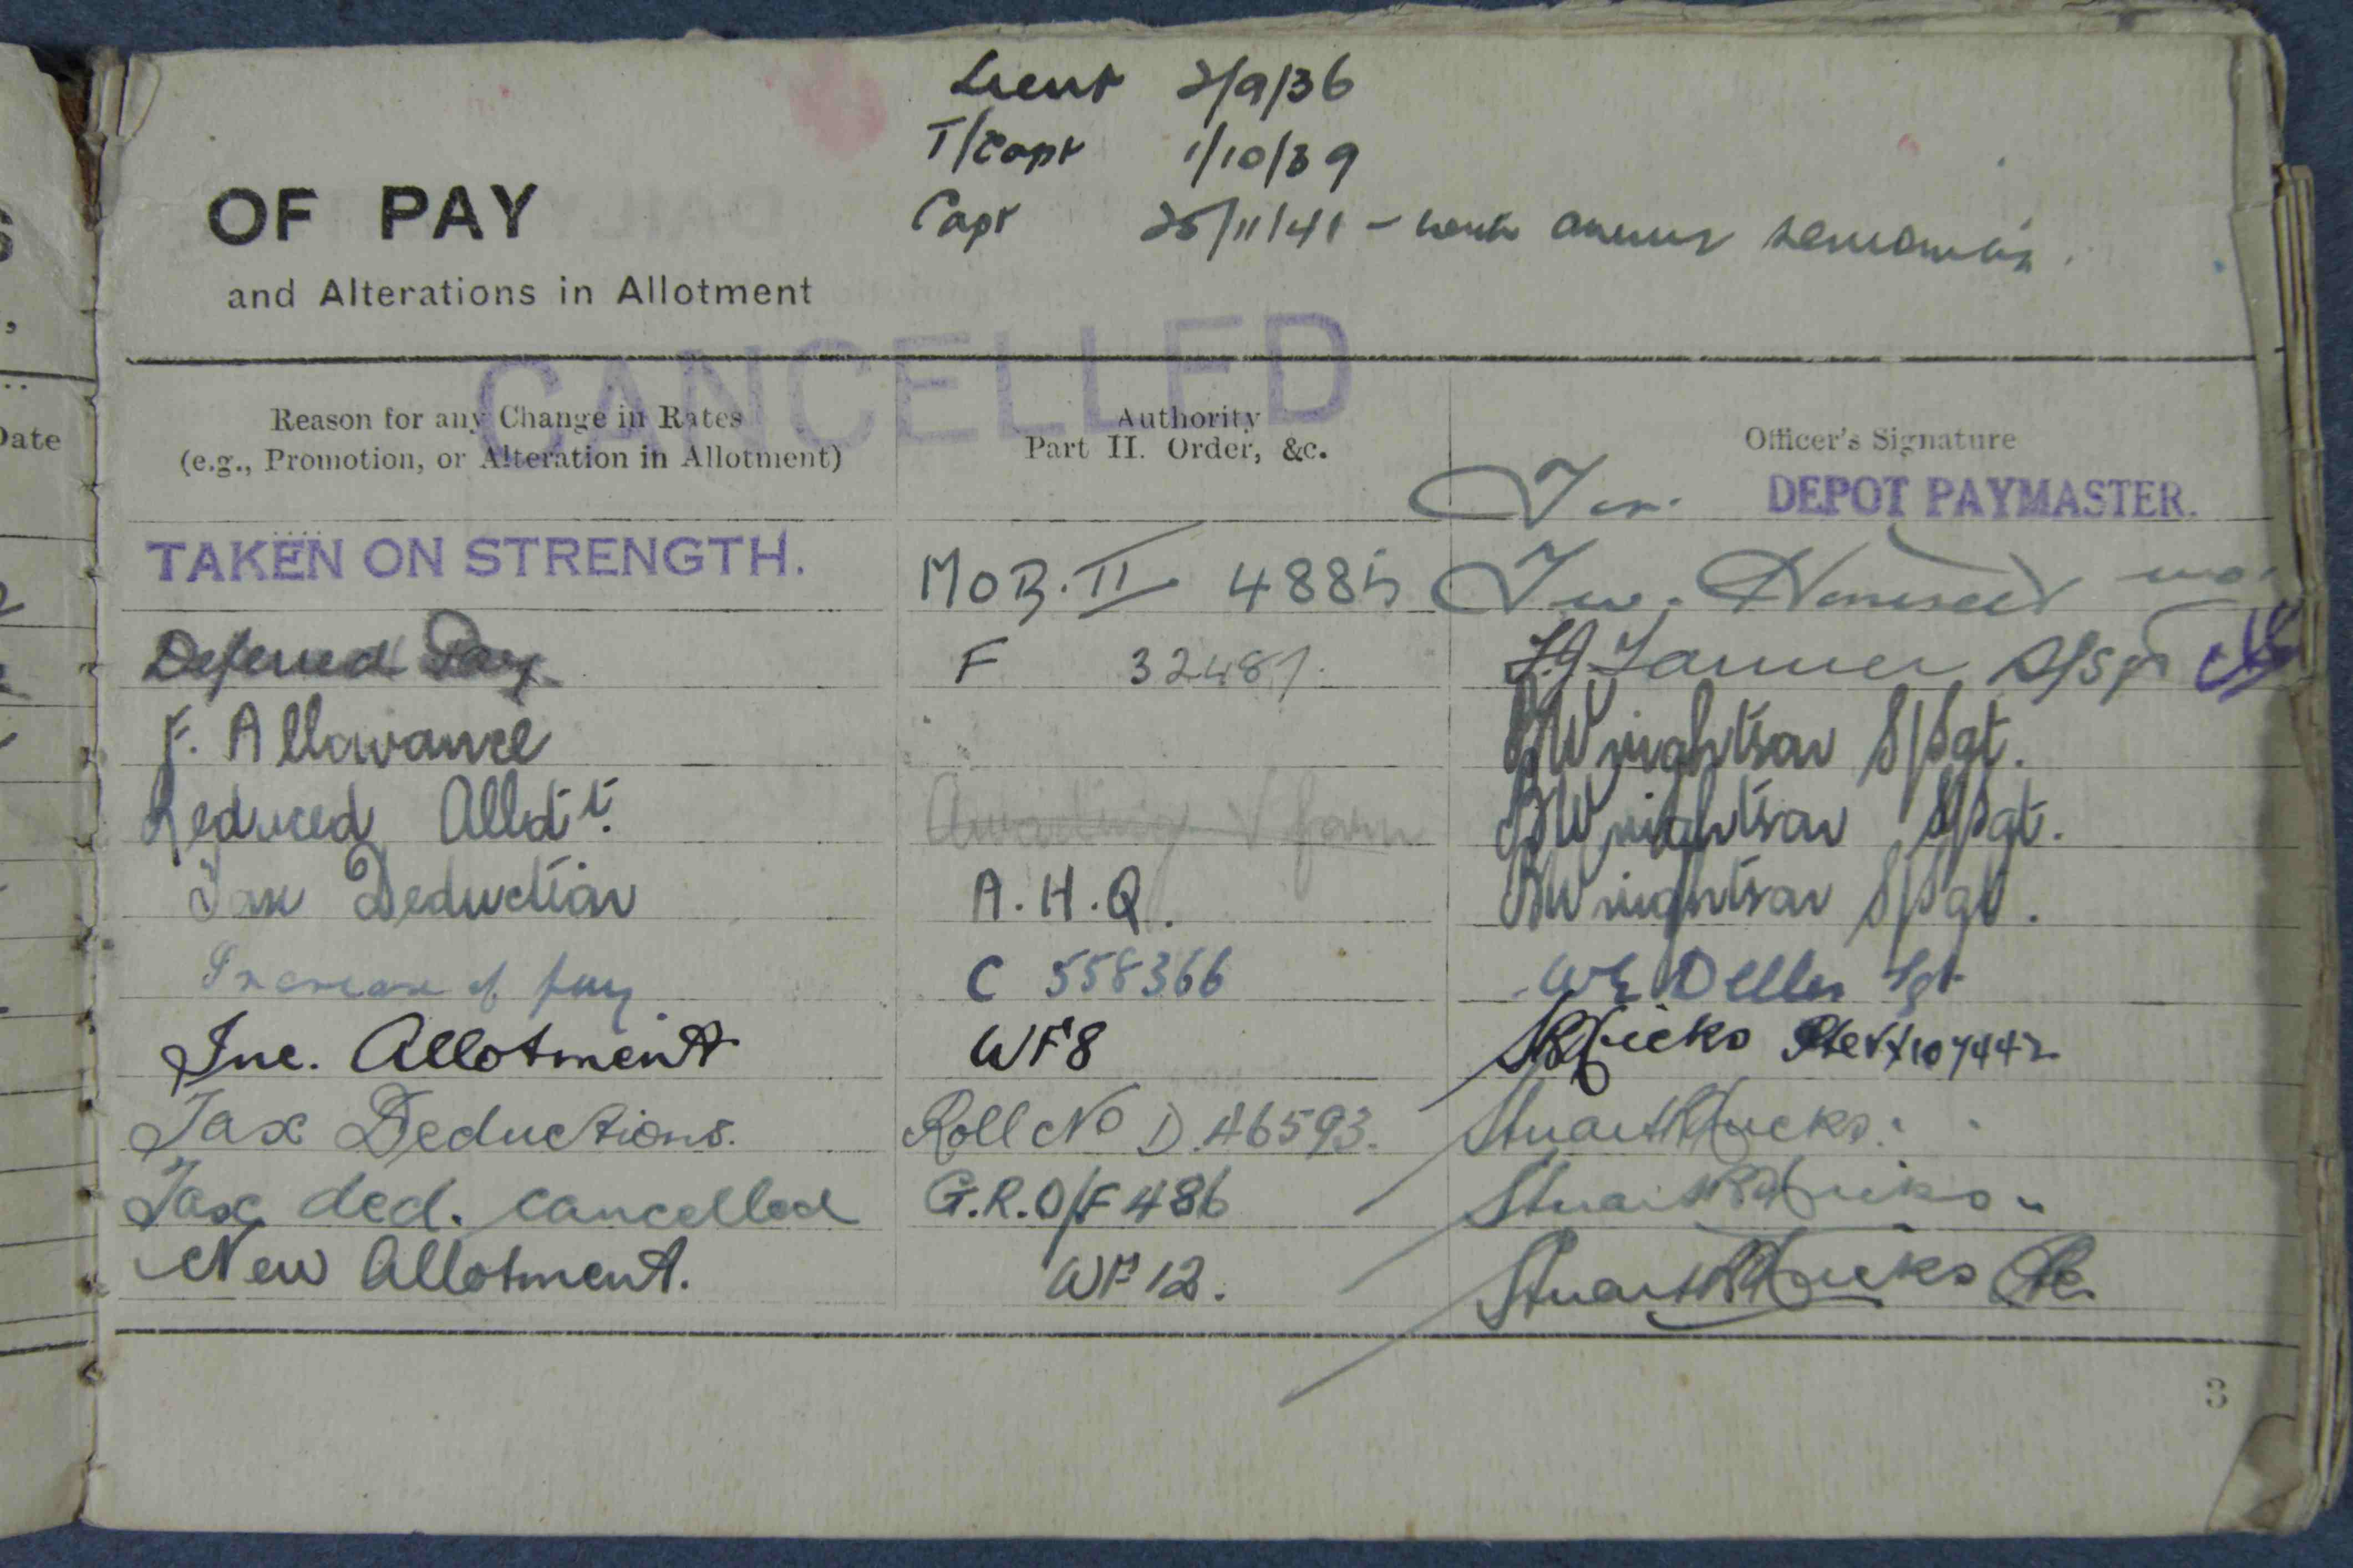 Lieut 2/9/36
T/Capt 1/10/39
Capt 25/11/41 -
OF PAY
and Alterations in Allotment
CANCELLED
Date
Reason for any Change in Rates
(e.g., Promotion, or Alteration in Allotment)
Authority
Part II. Order, &c.
Officer's Signature
DEPOT PAYMASTER.
TAKEN ON STRENGTH. MOB. II 4885
Deferred Pay F 32481
F. Allowance BWrightson S/Sgt.
Reduced Allot't. Awaiting form BWrightson S/Sgt.
Tax Deduction A.H.Q. BWrightson S/Sgt.
Increase of pay. C 558366 Sgt
Inc. Allotment WF8 Pte VX107442
Tax Deductions. Roll No D.A6593. Stuart
Tax ded. cancelled G.R.O/F 486 Stuart
New Allotment. WF 12. Stuart Pte.
3